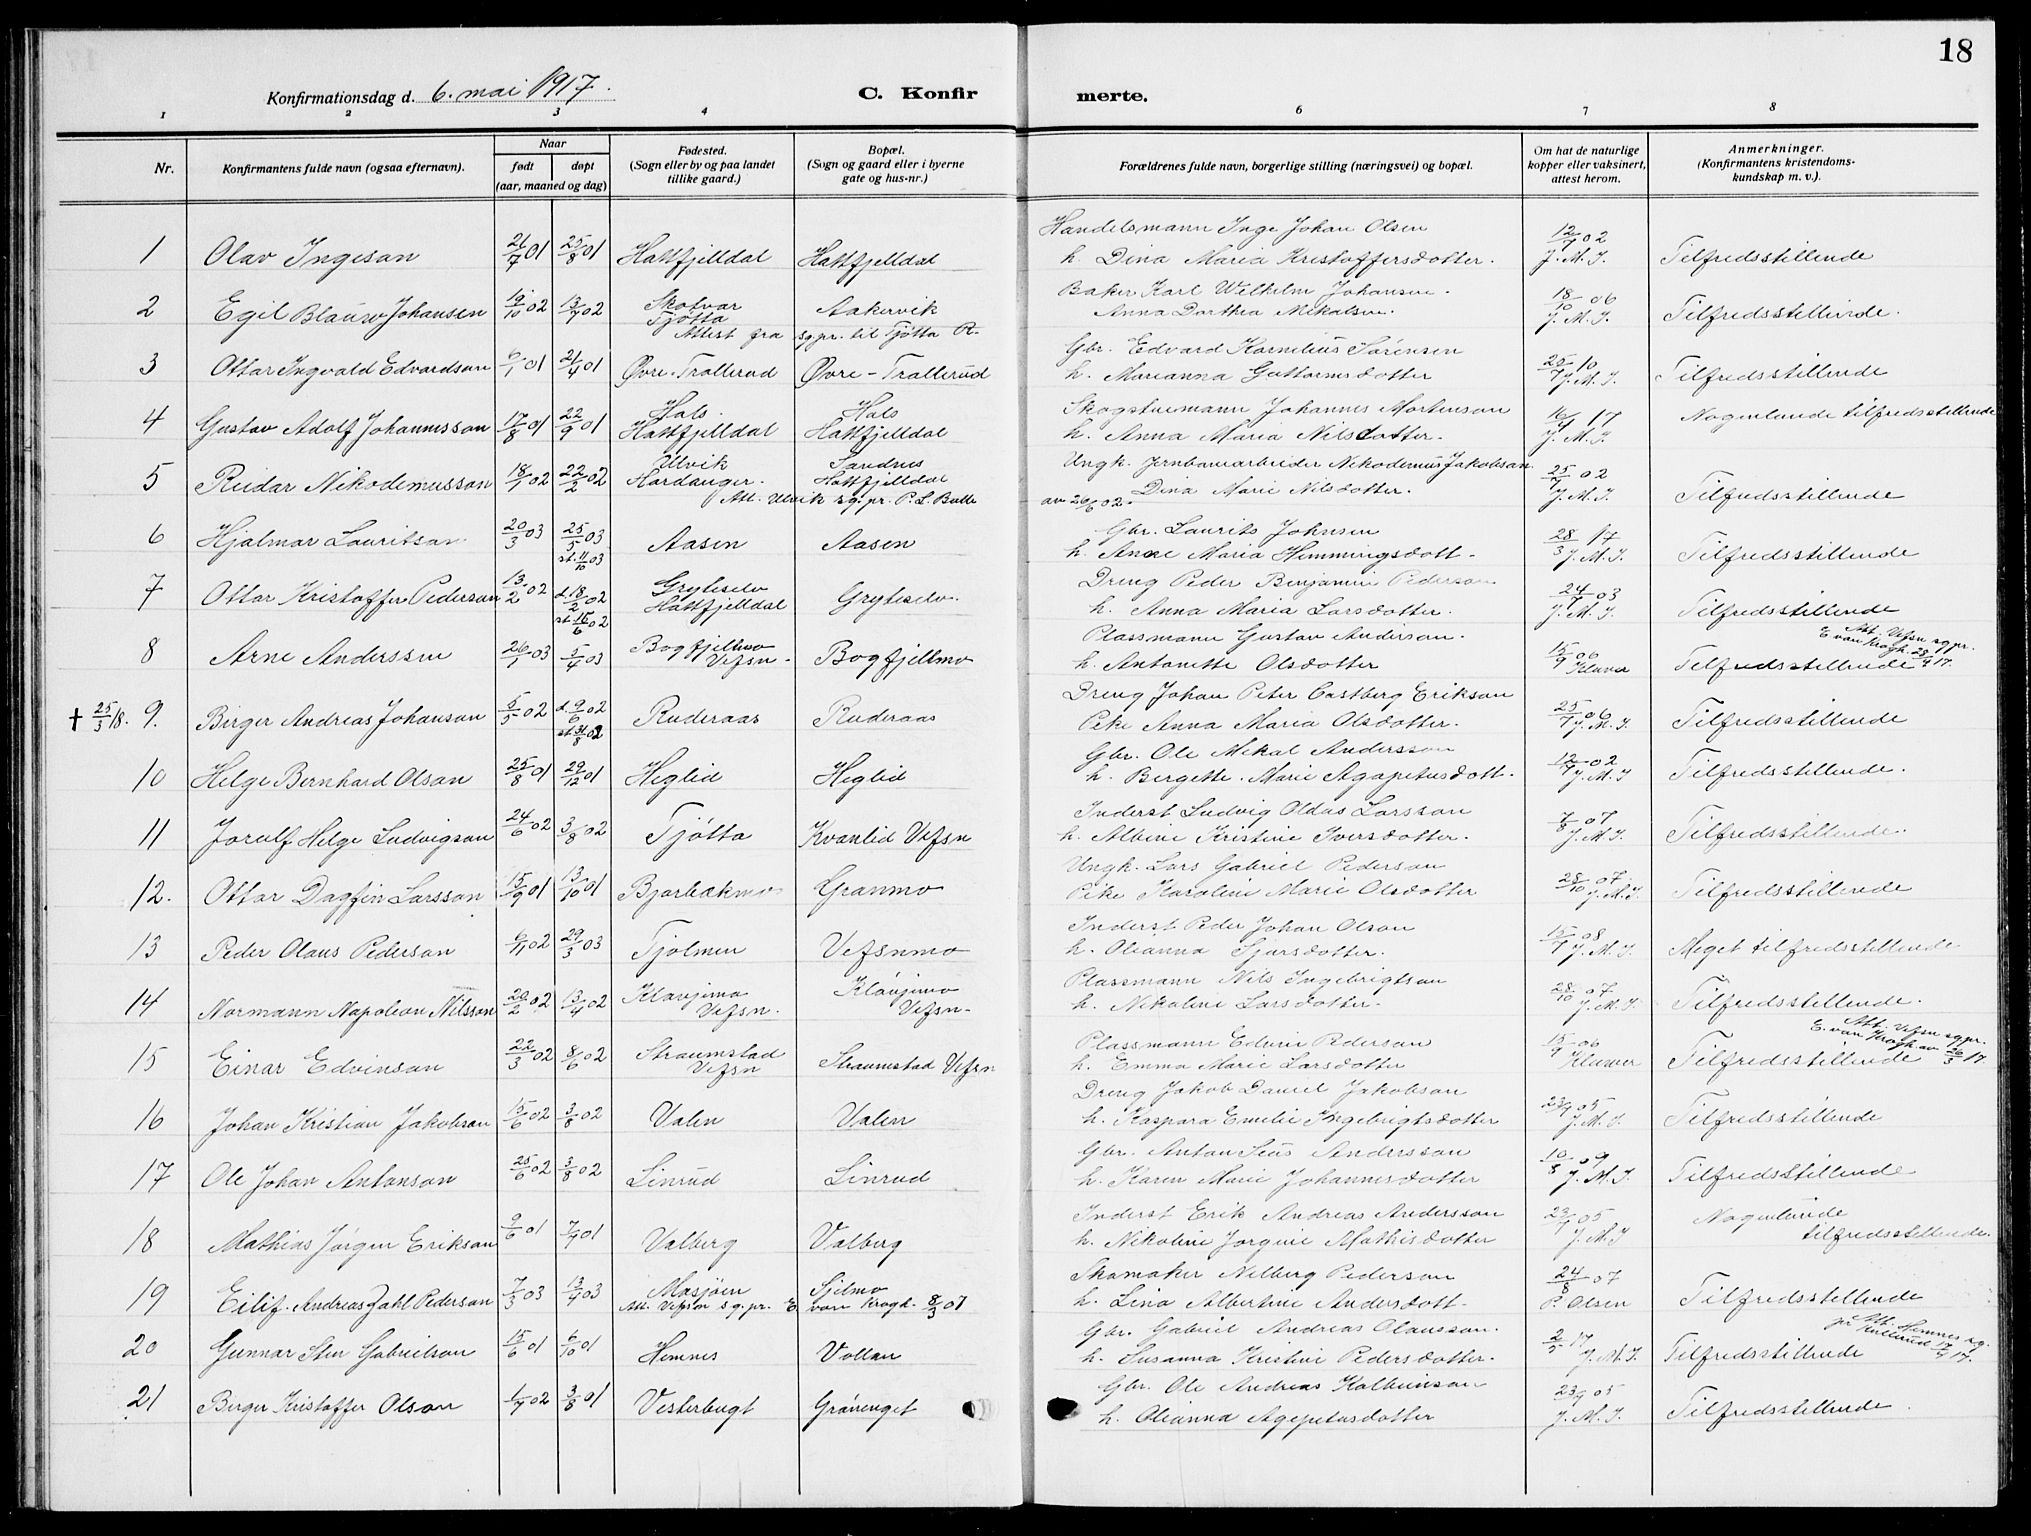 18
Konfirmationsdag d. 6. mai 1917.
C. Konfirmerte.
1 2 3 4 6 7 8
Nr.
Konfirmantens fulde navn (ogsaa efternavn).
Naar
født døpt
(aar, maaned og dag)
Fødested.
(Sogn eller by og paa landet
tillike gaard.)
Bopæl.
(Sogn og gaard eller i byerne
gate og hus-nr.)
Forældrenes fulde navn, borgerlige stilling (næringsvei) og bopæl.
Om hat de naturlige
kopper eller vaksinert,
attest herom.
Anmerkninger.
(Konfirmantens kristendoms-
kundskap m. v.).
Handelsmann Inge Johan Olsen
1 Olav Ingesan 21/7 01 25/8 01 Hattfjelldal Hattfjelldal h. Dina Maria Kristoffersdotter. 12/7 02 J. M. I. Tilfredsstillende
Baker Karl Welhelm Johansen.
2 Egil Blauw Johansen 19/10 02 13/7 02 Skotvær Tjøtta Aakervik Anna Dorthea Nikolsen. 18/10 06 J. M. I. Tilfredsstillende.
Attest fra sg.pr. til Tjøtta R.
Gbr. Edvard Kornelius Sørensen
3 Ottar Ingvald Edvardson 6/1 01 21/4 01 Øvre-Trallerud Øvre-Trallerud h. Marianna Guttormsdotter 25/7 10 J. M. I. Tilfredsstillende
Skogstuemann Johannes Mortenson
4 Gustav Adolf Johannesson 17/8 01 22/9 01 Hals. Hattfjelldal Hals Hattfjelldal h. Anna Maria Nilsdotter. 16/4 17 J. M. I. Nogenlunde tilfredsstillende
Ungk. Jernbanearbeider Nekodemus Jakobson
5 Reidar Nikodemusson 18/1 02 22/2 02 Ulvik Hardanger. Sandnes Hattfjelldal Dina Marie Nilsdotter. 25/7 02 J. M. I. Tilfredsstillende
Att. Ulvik sg.pr. P. L. Balle av 26/6 02.
Gbr. Laurits Johnsen
6 Hjalmar Lauritsan 20/3 03 25/5 03 st. 11/10 03 Aasen Aasen h. Anne Maria Hemmingsdott. 28/3 14 J. M. I. Tilfredsstillende
Dreng Peder Benjamin Pederson
7 Ottar Kristoffer Pederson 13/2 02 d. 18/2 02 st. 15/6 02 Gryteselv Hattfjelldal Gryteselv. h. Anna Maria Larsdotter. 24/7 03 J. M. I. Tilfredsstillende
Plassmann Gustav Anderson.
8 Arne Anderssen 26/1 03 5/4 03 Bogfjellmo Vefsn. Bogfjellmo h. Antonette Olsdotter 15/9 06 Kluwer Tilfredsstillende
Att. Vefsn sg.pr. E. van Krogh. 23/4 17.
Dreng Johan Peter Castberg Erikson
† 25/3 18. 9. Birger Andreas Johanson 5/5 02 d. 9/6 02 st. 31/8 02 Ruderaas Ruderaas Pike Anna Maria Olsdotter. 25/7 06 J. M. I. Tilfredsstillende
Gbr. Ole Mekal Andersson
10 Helge Bernhard Olson 25/8 01 29/12 01 Heglid Heglid h. Bergette Marie Agapetusdott. 12/7 02 J. M. I Tilfredsstillende.
Inderst Ludvig Oldus Larsson
11 Jorulf Helge Ludvigson 24/6 02 3/8 02 Tjøtta Kvanlid Vefsn h. Albine Kristine Iversdotter. 7/8 07 J. M. I. Tilfredsstillende.
Ungk. Lars Gabriel Pederson
12. Ottar Dagfin Larsson 15/9 01 13/10 01 Bjorbækmo Granmo Pike Karoline Marie Olsdotter 28/10 07. J. M. I. Tilfredsstillende
Inderst Peder Johan Olson
13 Peder Olaus Pederson 6/11 02 29/3 03 Tjolmen Vefsnmo h. Oleanna Sjursdotter. 15/7 08 J. M. I. Meget tilfredsstillende
Plassmann Nils Ingebrigtson
14 Normann Napoleon Nilsson 20/2 02 13/4 02 Klavjimo Vefsn. Klavjimo Vefsn. h. Nikoline Larsdotter. 28/10 07 J. M. I. Tilfredsstillende.
Plassmann Edvin Pederson
15 Einar Edvinson 22/3 02 8/6 02 Straumstad Vefsn Straumstad Vefsn h. Emma Marie Larsdotter 15/9 06 Kluwer Tilfredsstillende
Att. Vefsn sg.pr. E. van Krogh av 26/3 17.
Dreng Jakob Daniel Jakobson
16 Johan Kristian Jakobson 15/6 02 3/8 02 Valen Valen h. Kaspara Emelie Ingebrigtsdotter 23/9 05 J. M. I. Tilfredsstillende
Gbr. Anton Seus Andersson
17 Ole Johan Antonson 25/6 02 3/8 02 Linrud Linrud h. Karen Marie Johannesdotter 10/8 09 J. M. I. Tilfredsstillende
Inderst Erik Andreas Andersson
18 Mathias Jørgen Erikson 9/6 01 7/7 01 Valberg Valberg h. Nikoline Jørgine Mathisdotter 23/9 05 J. M. I Nogenlunde tilfredsstillende.
Skomaker Nilberg Pederson
19 Eilif Andreas Zahl Pederson 7/3 03 13/4 03 Mosjøen Sjelmo h. Lina Albertine Andersdott. 24/8 07 P. Olsen Tilfredsstillende
Att. Vefsn sg.pr. E. van Krogh. 8/3 07
Gbr. Gabriel Andreas Olausson.
20 Gunnar Sten Gabrielson 15/6 01 6/10 01 Hemnes Vollan h. Susanna Kristine Pedersdotter. 2/5 17 J. M. I. Tilfredsstillende
Att. Hemnes sg. pr 12/4 17.
Gbr. Ole Andreas Kolbeinson
21 Birger Kristoffer Olson 1/7 02 3/8 01 Vesterbugt Grønenget h. Oleanna Agepetusdotter 23/9 05 J. M. I. Tilfredsstillende